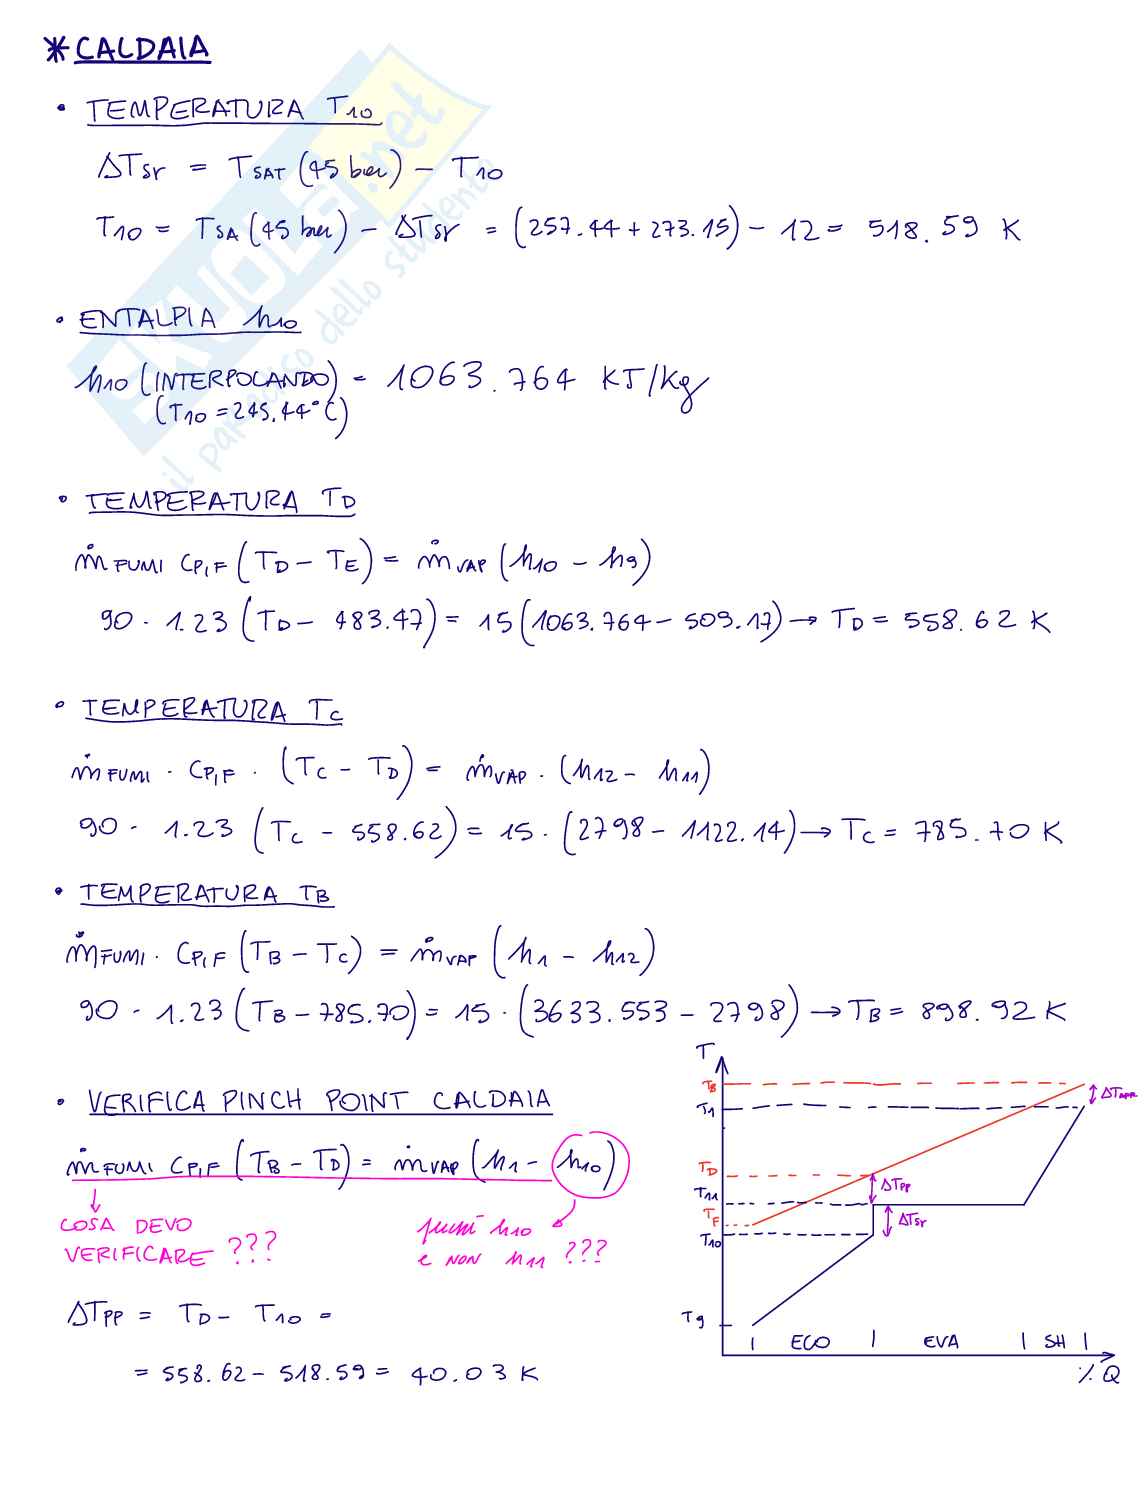 * CALDAIA
• TEMPERATURA T10
ΔTsr = TSAT (45 bar) - T10
T10 = TSA (45 bar) - ΔTsr = (257.44 + 273.15) - 12 = 518.59 K
• ENTALPIA h10
h10 (INTERPOLANDO) = 1063.764 KJ/Kg
(T10 = 245.44°C)
SKUOLA.net
il paradiso dello studente
• TEMPERATURA TD
ṁFUMI CP,F (TD - TE) = ṁVAP (h10 - h9)
90 · 1.23 (TD - 483.47) = 15 (1063.764 - 509.17) → TD = 558.62 K
• TEMPERATURA TC
ṁFUMI · CP,F · (TC - TD) = ṁVAP · (h12 - h11)
90 · 1.23 (TC - 558.62) = 15 · (2798 - 1122.14) → TC = 785.70 K
• TEMPERATURA TB
ṁFUMI · CP,F (TB - TC) = ṁVAP (h1 - h12)
90 · 1.23 (TB - 785.70) = 15 · (3633.553 - 2798) → TB = 898.92 K
• VERIFICA PINCH POINT CALDAIA
ṁFUMI CP,F (TB - TD) = ṁVAP (h1 - h10)
COSA DEVO
VERIFICARE ???
perché h10
e non h11 ???
ΔTPP = TD - T10 =
= 558.62 - 518.59 = 40.03 K
T
TB
T1
ΔTAPP
TD
ΔTPP
T11
TF
ΔTsr
T10
T9
ECO
EVA
SH
% Q